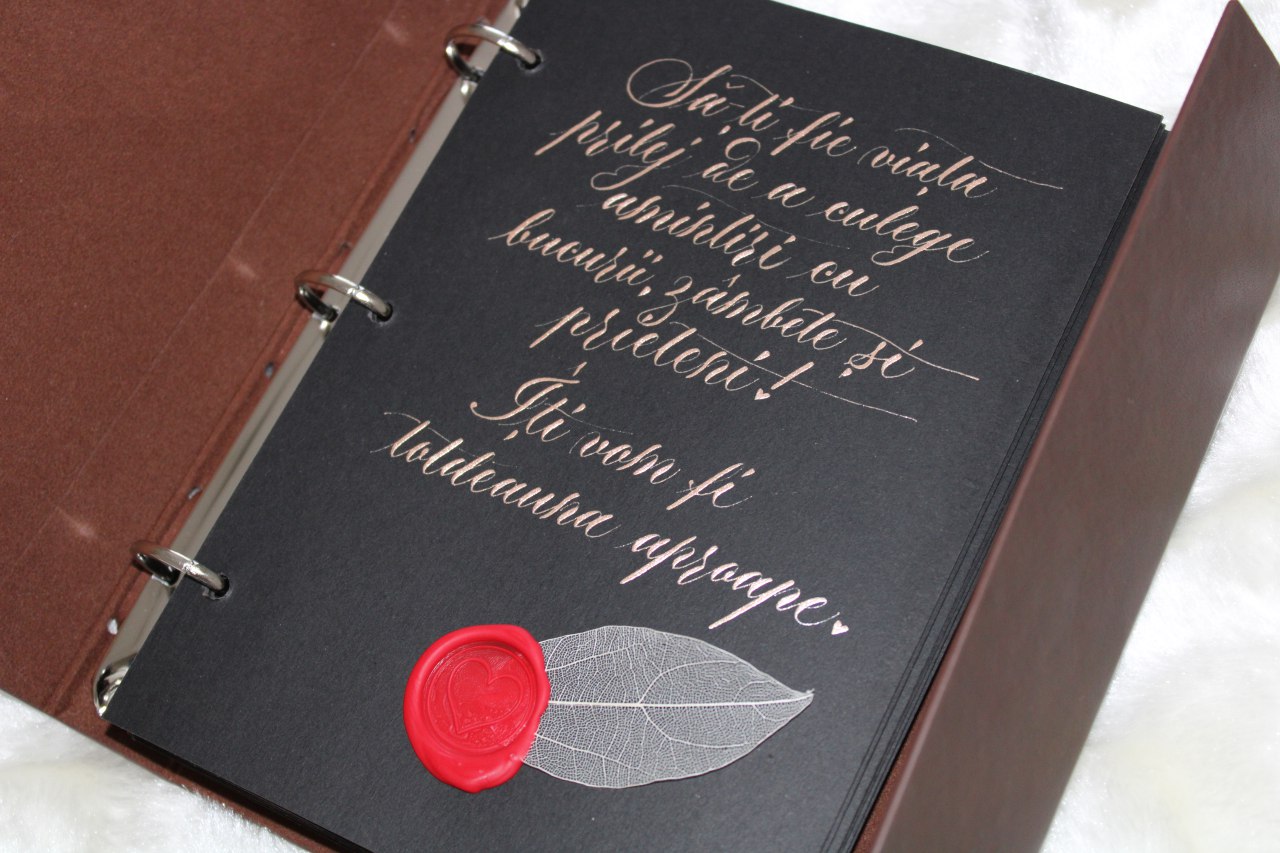 Să-ți fie viața
prilej de a culege
amintiri cu
bucurii, zâmbete și
prieteni!
Îți vom fi
totdeauna aproape.